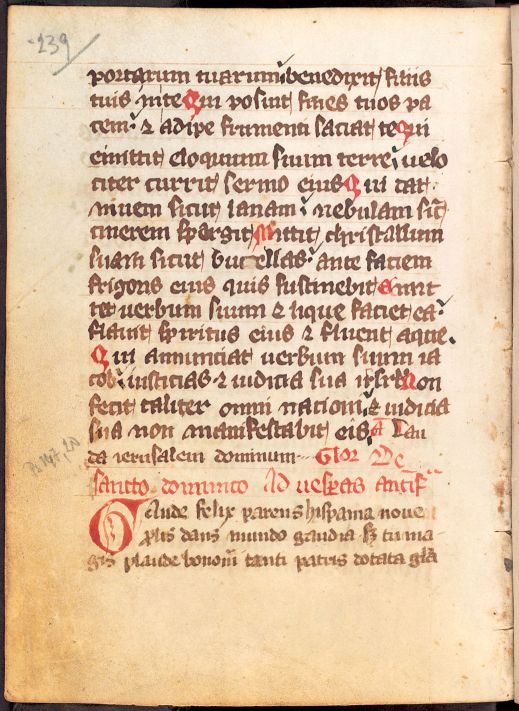 239
portarum tuarum benedixit filiis
tuis in te Qui posuit fines tuos pa
cem ⁊ adipe frumenti saciat te Qui
emittit eloquium suum terre velo
citer currit sermo eius Qui dat
nivem sicut lanam nebulam sic̄
cinerem spergit Mittit christallum
suam sicut bucellas ante faciem
frigoris eius quis sustinebit Emit
tet verbum suum ⁊ lique faciet ea
flavit spiritus eius ⁊ fluent aque
Qui annunciat verbum suum ia
cob iusticias ⁊ iudicia sua isrl Non
fecit taliter omni nationi ⁊ iudicia
sua non manifestabit eis Lau
da ierusalem dominum Glor De
sancto dominico Ad vesperas antiff
Gaude felix parens hispania nove
prolis dans mundo gaudia sꝫ tu ma
gis plaude bononia tanti patris dotata gl̄a